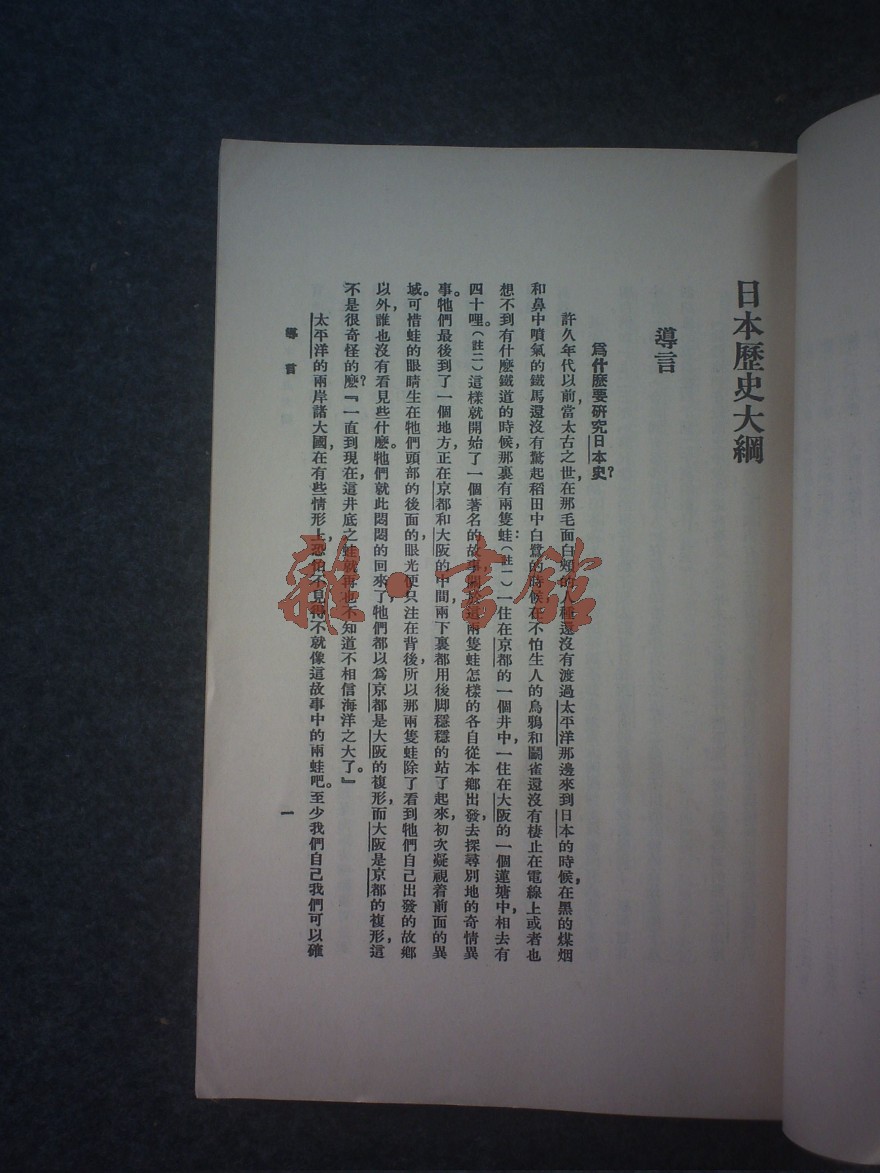 日本歷史大綱
導言
爲什麽要研究日本史?
許久年代以前,當太古之世,在那毛面白頰的人種還沒有渡過太平洋那邊來到日本的時候,在黑的煤烟
和鼻中噴氣的鐵馬還沒有驚起稻田中白鷺的時候,在不怕生人的烏鴉和鷊雀還沒有棲止在電線上或者也
想不到有什麽鐵道的時候,那裏有兩隻蛙(註一):一住在京都的一個井中,一住在大阪的一個蓮塘中,相去有
四十哩。(註二)這樣就開始了一個著名的故事,關於這兩隻蛙怎樣的各自從本鄉出發去探尋別地的奇情異
事。牠們最後到了一個地方,正在京都和大阪的中間,兩下裏都用後脚穩穩的站了起來,初次凝視着前面的異
域。可惜蛙的眼睛生在牠們頭部的後面的,眼光便只注在背後,所以那兩隻蛙除了看到牠們自己出發的故鄉
以外,誰也沒有看見些什麽。牠們就此悶悶的回來了,牠們都以爲京都是大阪的複形,而大阪是京都的複形,這
不是很奇怪的麽?『一直到現在,這井底之蛙就再也不知道不相信海洋之大了。』
太平洋的兩岸諸大國,在有些情形上,恐怕不見得不就像這故事中的兩蛙吧。至少我們自己我們可以確
導言
一
雜·書館